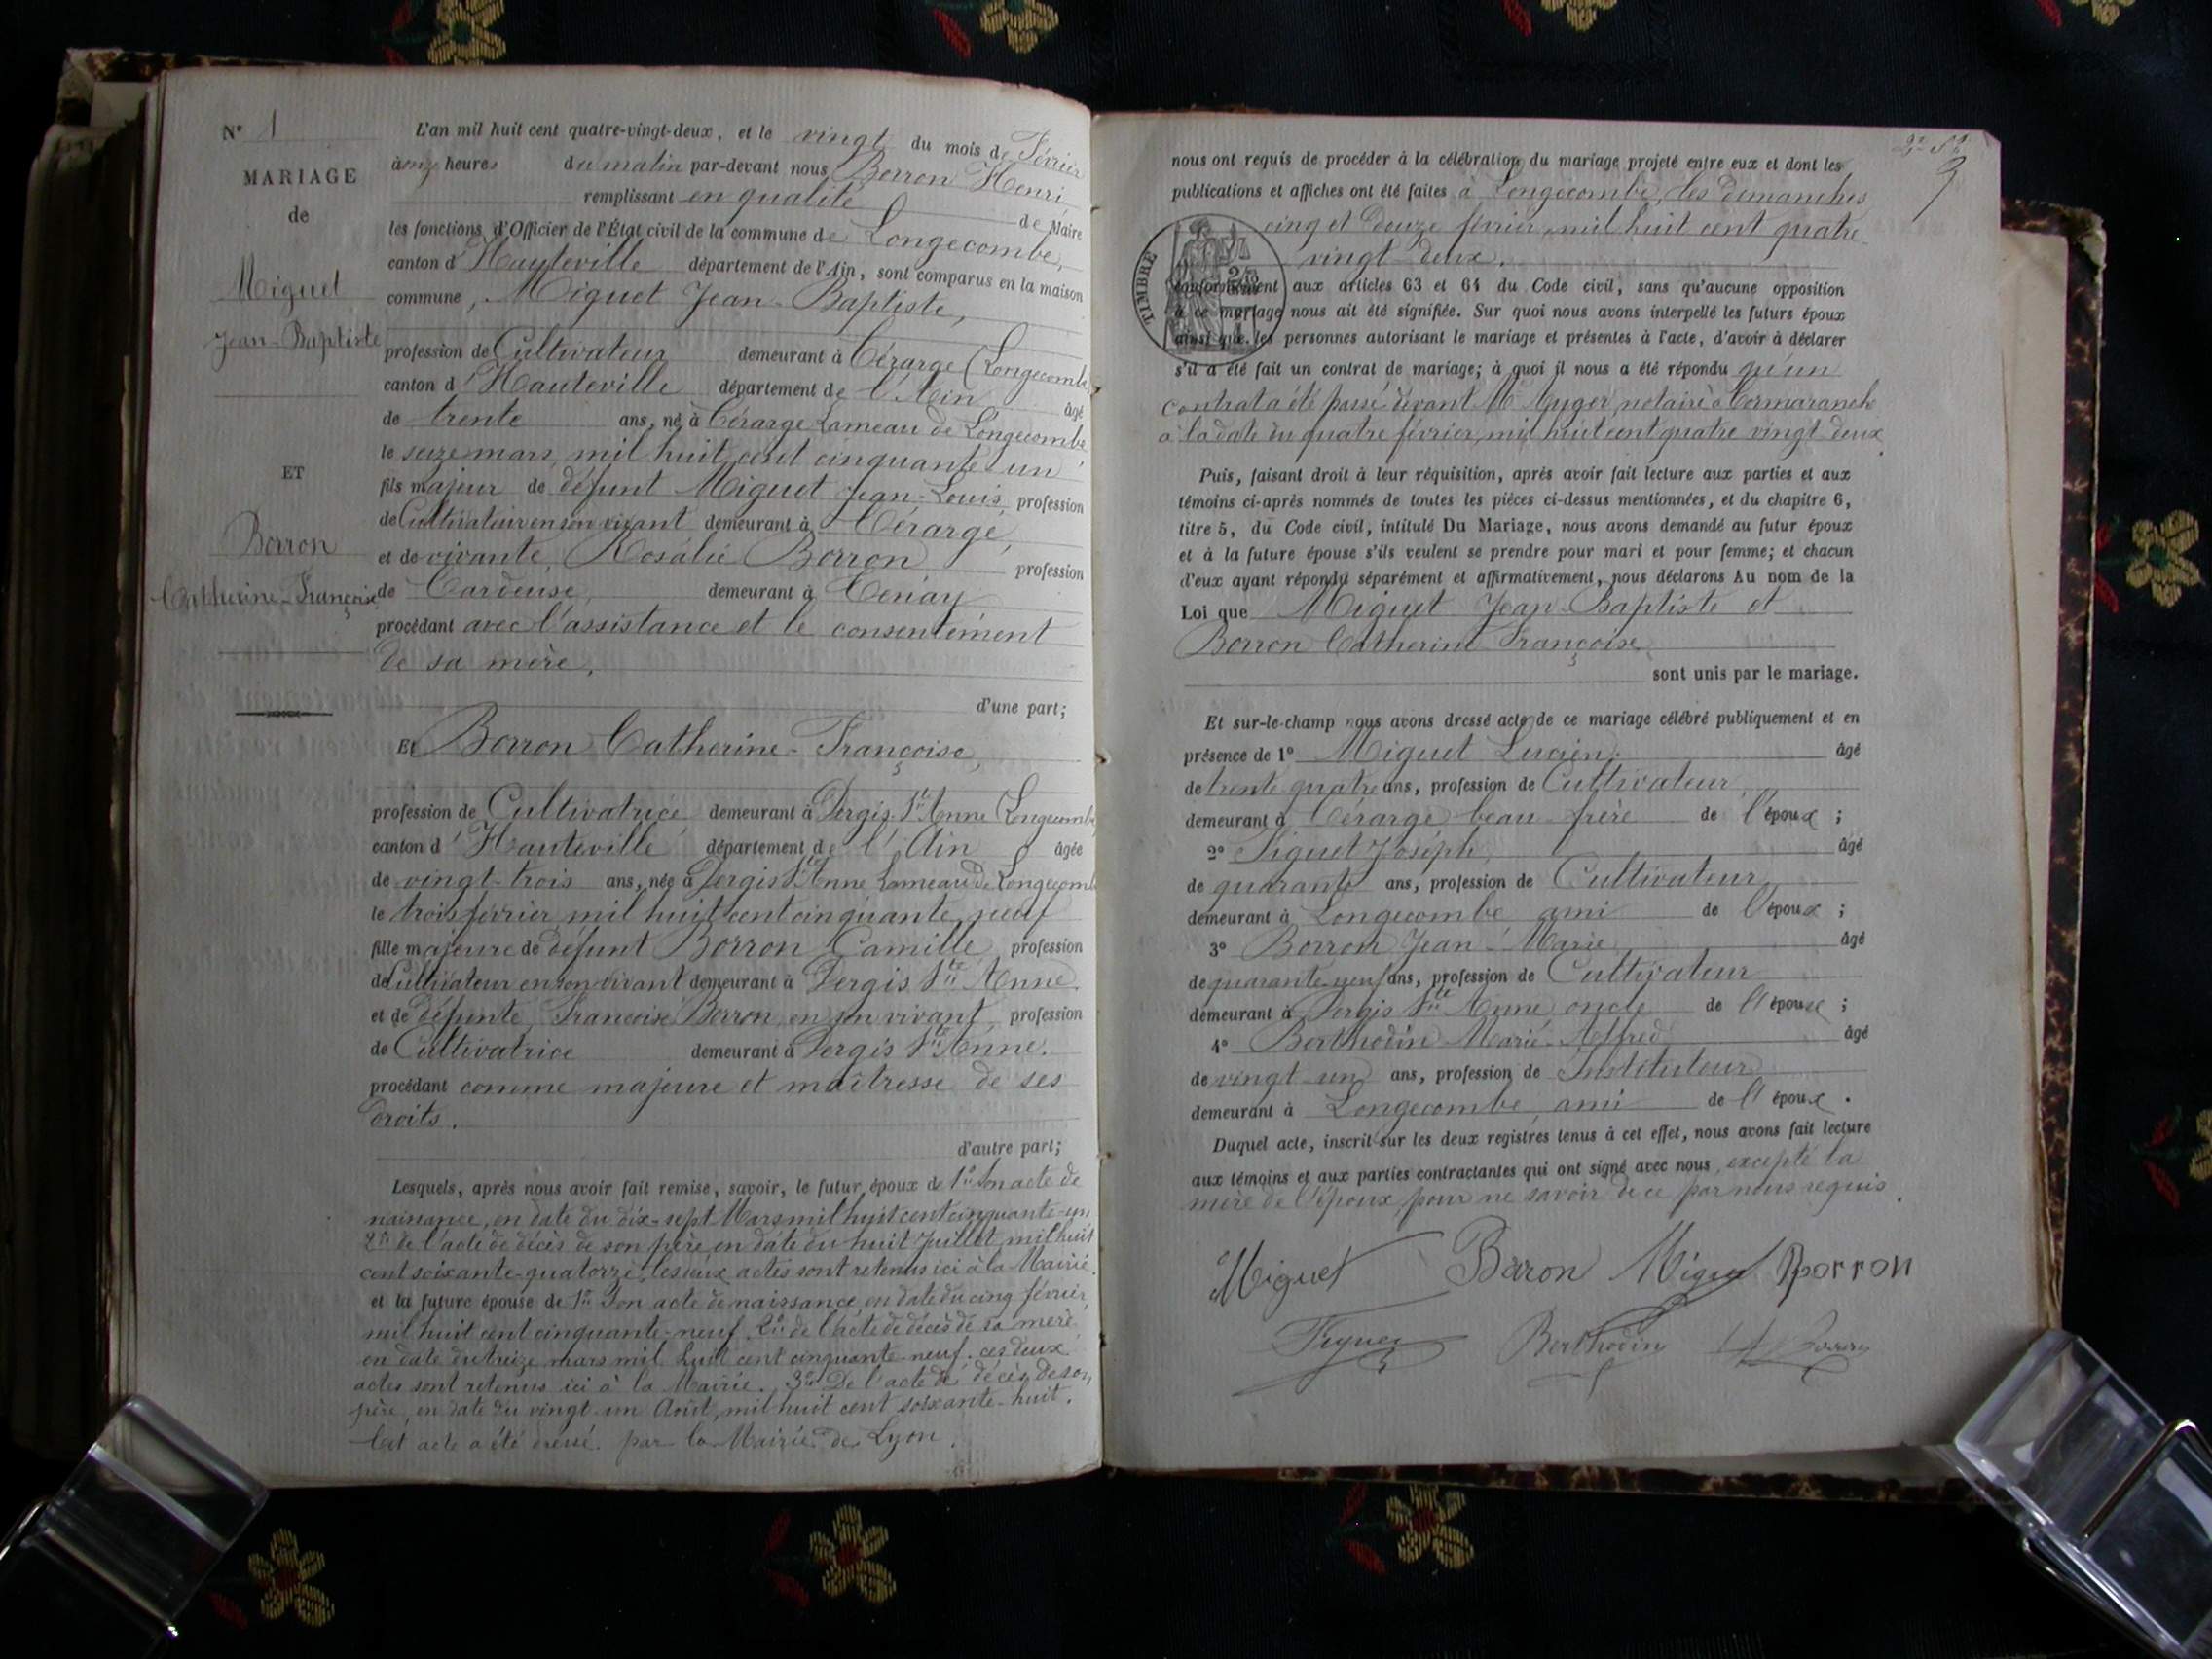 N° 1
MARIAGE
de
Miguet
Jean-Baptiste
ET
Borron
Catherine-Françoise
L'an mil huit cent quatre-vingt-deux, et le vingt du mois de Février
à onze heures du matin par-devant nous Borron Henri
remplissant en qualité de Maire
les fonctions d'Officier de l'État civil de la commune de Longecombe,
canton d'Hauteville département de l'Ain, sont comparus en la maison
commune, Miguet Jean-Baptiste,
profession de Cultivateur demeurant à Cérarge (Longecombe
canton d'Hauteville département de l'Ain âgé
de trente ans, né à Cérarge hameau de Longecombe
le seize mars mil huit cent cinquante-un
fils majeur de défunt Miguet Jean-Louis, profession
de Cultivateur en son vivant demeurant à Cérarge,
et de vivante, Rosalie Borron profession
de Cardeuse, demeurant à Tenay
procédant avec l'assistance et le consentement
de sa mère,
d'une part;
Et Borron Catherine-Françoise,
profession de Cultivatrice demeurant à Dergis Ste Anne (Longecombe
canton d'Hauteville département de l'Ain âgée
de vingt-trois ans, née à Dergis Ste Anne hameau de Longecombe
le trois février mil huit cent cinquante neuf
fille majeure de défunt Borron Camille profession
de Cultivateur en son vivant demeurant à Dergis Ste Anne.
et de défunte Françoise Borron, en son vivant, profession
de Cultivatrice demeurant à Dergis Ste Anne.
procédant comme majeure et maîtresse de ses
droits.
d'autre part;
Lesquels, après nous avoir fait remise, savoir, le futur époux de 1° Son acte de
naissance, en date du dix-sept Mars mil huit cent cinquante-un
2° de l'acte de décès de son père, en date du huit Juillet mil huit
cent soixante-quatorze, les deux actes sont retenus ici à la Mairie.
et la future épouse de 1° Son acte de naissance en date du cinq février
mil huit cent cinquante-neuf. 2° de l'acte de décès de sa mère
en date du treize mars mil huit cent cinquante-neuf. ces deux
actes sont retenus ici à la Mairie. 3° De l'acte de décès de son
père, en date du vingt-un Août, mil huit cent soixante-huit.
Cet acte a été dressé par la Mairie de Lyon.
nous ont requis de procéder à la célébration du mariage projeté entre eux et dont les
publications et affiches ont été faites à Longecombe, les dimanches
cinq et douze février mil huit cent quatre
vingt deux.
TIMBRE
conformément aux articles 63 et 64 du Code civil, sans qu'aucune opposition
à ce mariage nous ait été signifiée. Sur quoi nous avons interpellé les futurs époux
ainsi que les personnes autorisant le mariage et présentes à l'acte, d'avoir à déclarer
s'il a été fait un contrat de mariage; à quoi il nous a été répondu qu'un
contrat a été passé devant Me Auger notaire à Cormaranche
à la date du quatre février, mil huit cent quatre vingt deux.
Puis, faisant droit à leur réquisition, après avoir fait lecture aux parties et aux
témoins ci-après nommés de toutes les pièces ci-dessus mentionnées, et du chapitre 6,
titre 5, du Code civil, intitulé Du Mariage, nous avons demandé au futur époux
et à la future épouse s'ils veulent se prendre pour mari et pour femme; et chacun
d'eux ayant répondu séparément et affirmativement, nous déclarons Au nom de la
Loi que Miguet Jean-Baptiste et
Borron Catherine Françoise
sont unis par le mariage.
Et sur-le-champ nous avons dressé acte de ce mariage célébré publiquement et en
présence de 1° Miguet Lucien, âgé
de trente quatre ans, profession de Cultivateur,
demeurant à Cérarge beau-frère de l'époux ;
2° Joseph, âgé
de quarante ans, profession de Cultivateur,
demeurant à Longecombe ami de l'époux ;
3° Borron Jean-Marie, âgé
de quarante-neuf ans, profession de Cultivateur
demeurant à Dergis Ste Anne oncle de l'épouse ;
4° Berthodin Marie-Alfred âgé
de vingt un ans, profession de Instituteur
demeurant à Longecombe, ami de l'époux.
Duquel acte, inscrit sur les deux registres tenus à cet effet, nous avons fait lecture
aux témoins et aux parties contractantes qui ont signé avec nous, excepté la
mère de l'époux, pour ne savoir de ce par nous requis.
Miguet Boron Miguet Borron
Berthodin H Borron